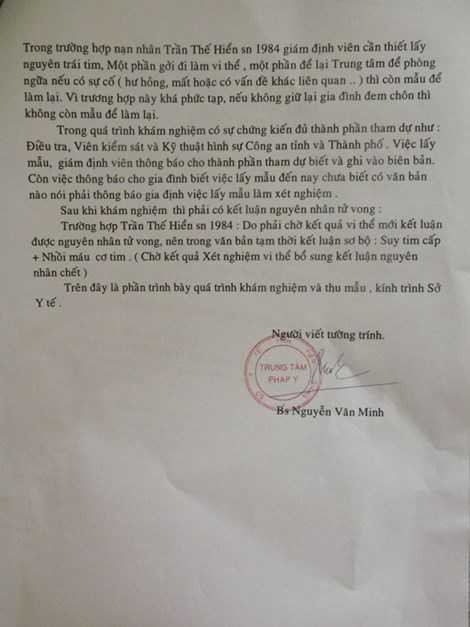 Trong trường hợp nạn nhân Trần Thế Hiển sn 1984 giám định viên cần thiết lấy
nguyên trái tim, Một phần gởi đi làm vi thể , một phần để lại Trung tâm để phòng
ngừa nếu có sự cố ( hư hỏng, mất hoặc có vấn đề khác liên quan .. ) thì còn mẫu để
làm lại. Vì trương hợp này khá phức tạp, nếu không giữ lại gia đình đem chôn thì
không còn mẫu để làm lại.
Trong quá trình khám nghiệm có sự chứng kiến đủ thành phần tham dự như :
Điều tra, Viên kiểm sát và Kỹ thuật hình sự Công an tỉnh và Thành phố . Việc lấy
mẫu, giám định viên thông báo cho thành phần tham dự biết và ghi vào biên bản.
Còn việc thông báo cho gia đình biết việc lấy mẫu đến nay chưa biết có văn bản
nào nói phải thông báo gia định việc lấy mẫu làm xét nghiệm .
Sau khi khám nghiệm thì phải có kết luận nguyên nhân tử vong :
Trường hợp Trần Thế Hiển sn 1984 : Do phải chờ kết quả vi thể mới kết luận
được nguyên nhân tử vong, nên trong văn bản tạm thời kết luận sơ bộ : Suy tim cấp
+ Nhồi máu cơ tim . ( Chờ kết quả Xét nghiệm vi thể bổ sung kết luận nguyên
nhân chết )
Trên đây là phần trình bày quá trình khám nghiệm và thu mẫu , kính trình Sở
Y tế .
Người viết tường trình.
TRUNG TÂM
PHÁP Y
Bs Nguyễn Văn Minh